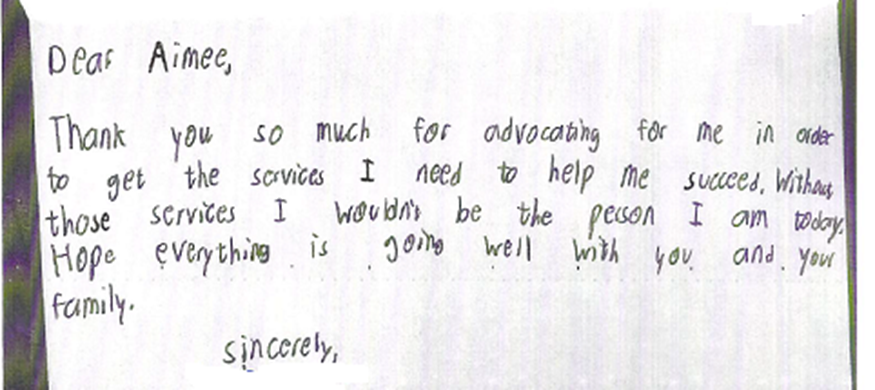 Dear Aimee,
Thank you so much for advocating for me in order
to get the services I need to help me succeed. Without
those services I wouldn't be the person I am today.
Hope everything is going well with you and your
family.
sincerely,